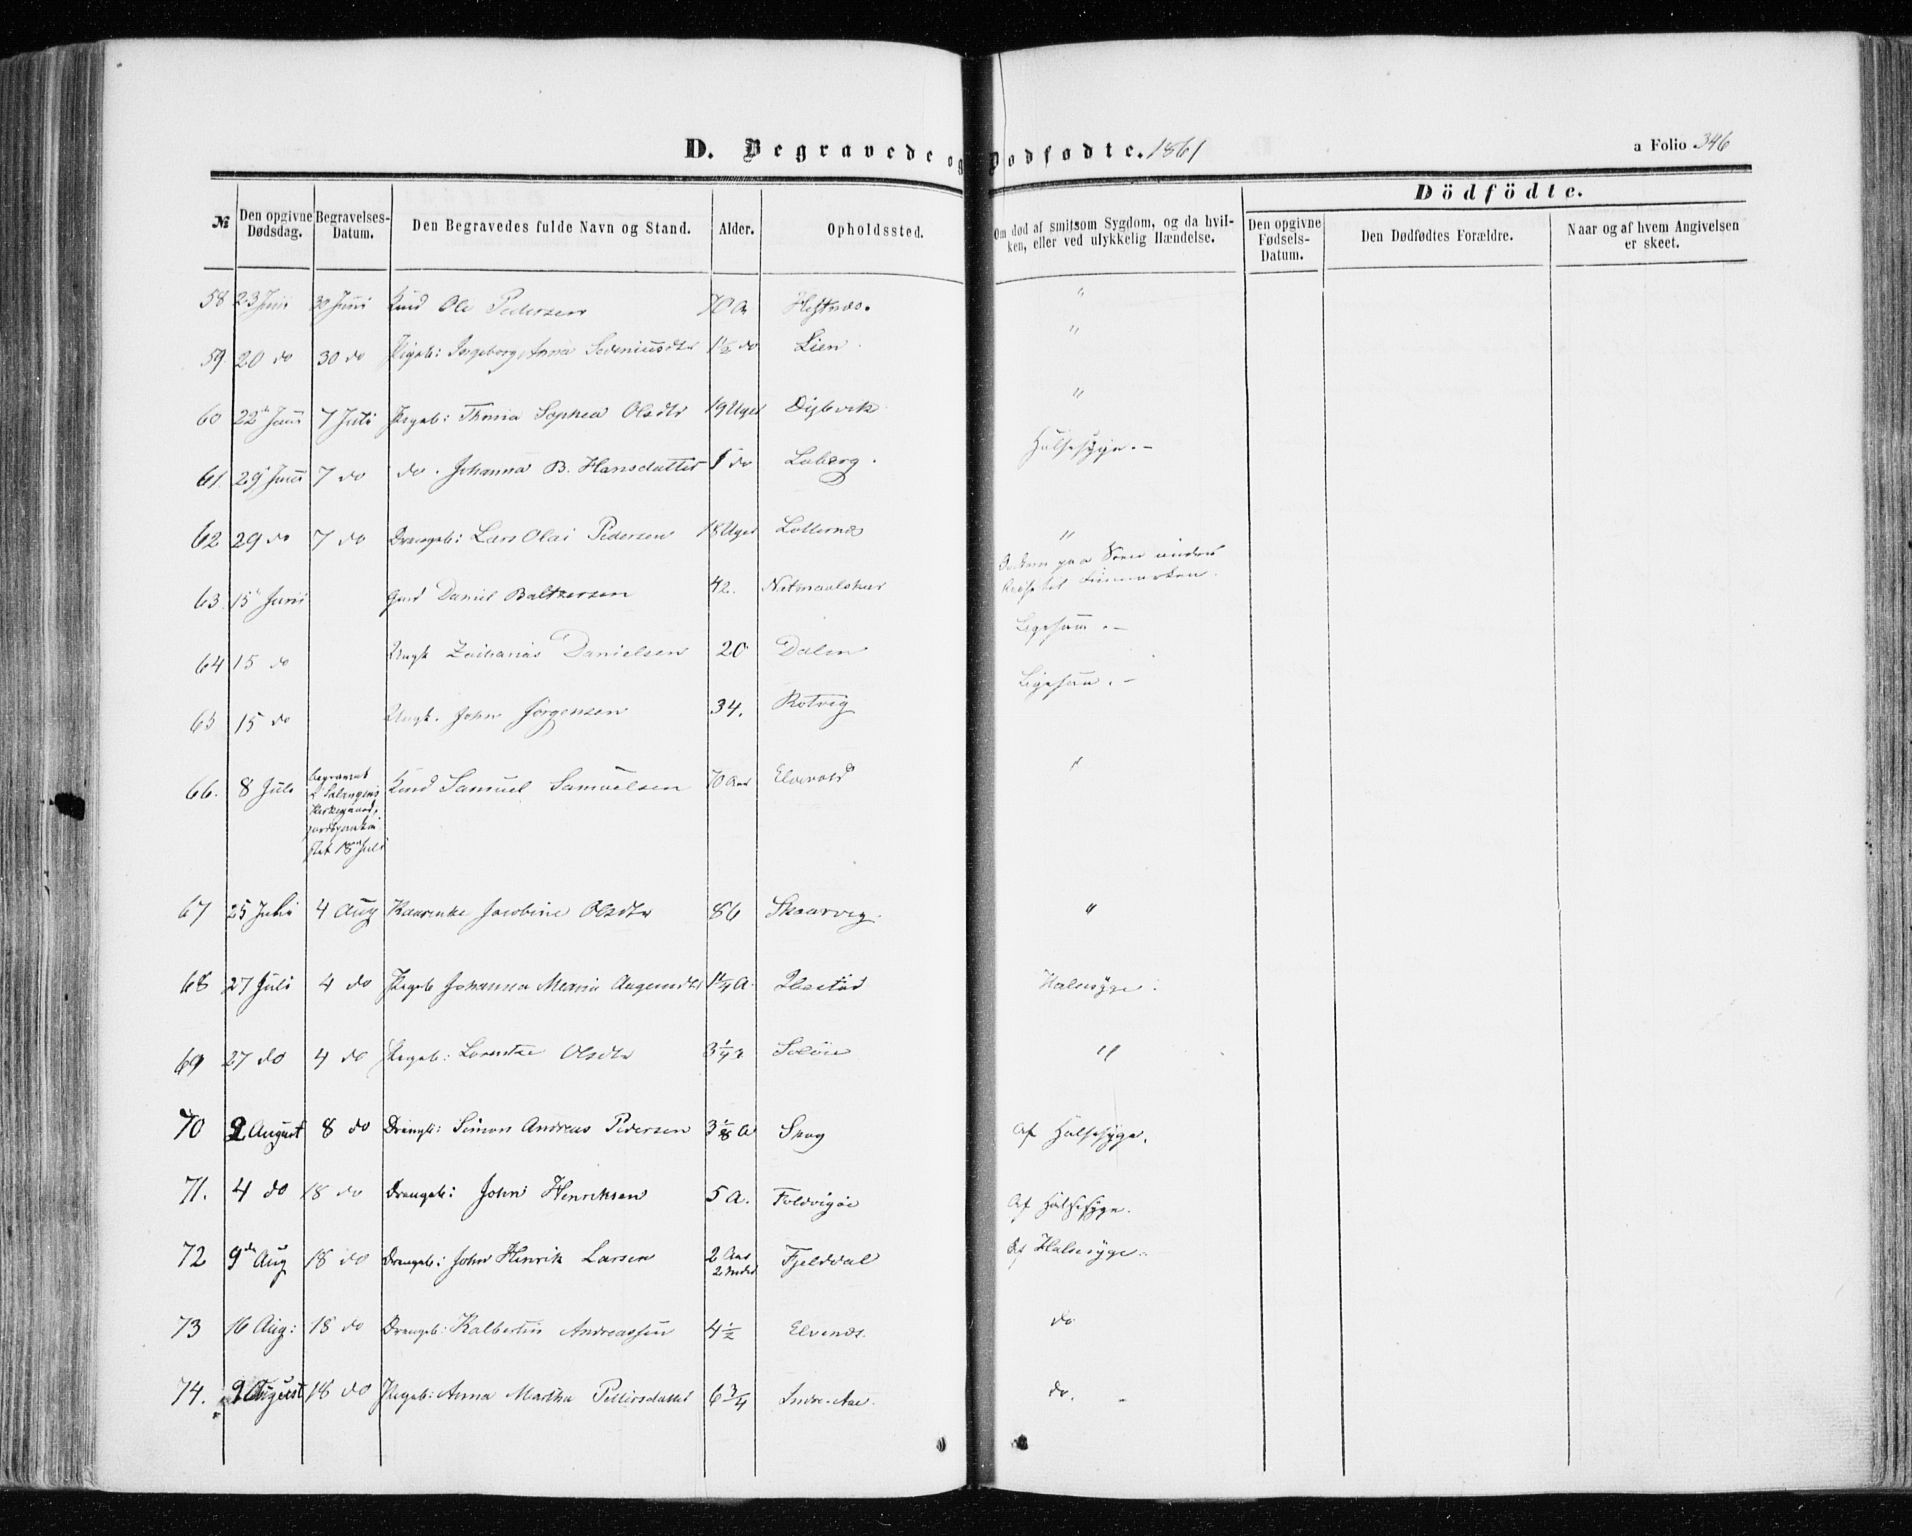 D. Begravede og Dødfødte. 1861
a Folio 346
Dödfödte.
№ Den opgivne Dødsdag. Begravelses-Datum. Den Begravedes fulde Navn og Stand. Alder. Opholdssted. Om død af smitsom Sygdom, og da hvilken, eller ved ulykkelig Hændelse. Den opgivne Fødsels-Datum. Den Dødfødtes Forældre. Naar og af hvem Angivelsen er skeet.
58 23 Juni 30 Juni Ole Pedersen 70 Hestnæs. "
59. 20 do 30 do Pigeb: Ingeborg Anna 1½ do Lien "
60 22 Juni 7 Juli Pigeb: Sophea Olsdtr 19 Uger Dybvik "
61. 29 Juni 7 do do. Johanna B. Hansdatter 1 do Laberg. Halsesyge.-
62 29 do 7 do Drengeb: Lars Olai Pedersen 18 Uger "
63. 15 Juni Gmd Daniel Baltzersen 42. paa Søen under Reise til Finmarken.
64 15 do Ungk Zacharias Danielsen 20 Dalen Ligesaa.-
65 15 do Ungk. John Jørgensen 34. Rotvig Ligesaa.-
66. 8 Juli Begravet Salangens Kirkegaard, 18 Juli Samuel Samuelsen 70 Aar "
67 25 Juli 4 Aug Jacobine Olsdtr 86 Skaarvig. "
68 27 Juli 4 do Pigeb Johanna Maria 1¼ A. Ibestad Halssyge.
69 27 do 4 do Pigeb: Lorentze Olsdtr 3¼ "
70 2 August 8 do Drengb: Simon Andreas Pedersen 3⅛ A Skog Af Halsesyge.
71. 4 do 18 do Drengeb: John Henriksen 5 A. Foldvigøe Af Halsesyge.
72 9de Aug 18 do Drengeb: John Henrik Larsen 2 Aar 2 Fjeldval Af Halssyge.
73 16 Aug: 18 do Drengeb: Kalbertin Andreassen 4½ Elvenæs. do
74. August 18 do Pigeb: Anna Martha Pettersdatter 6¾ Indre-Aae. do. -